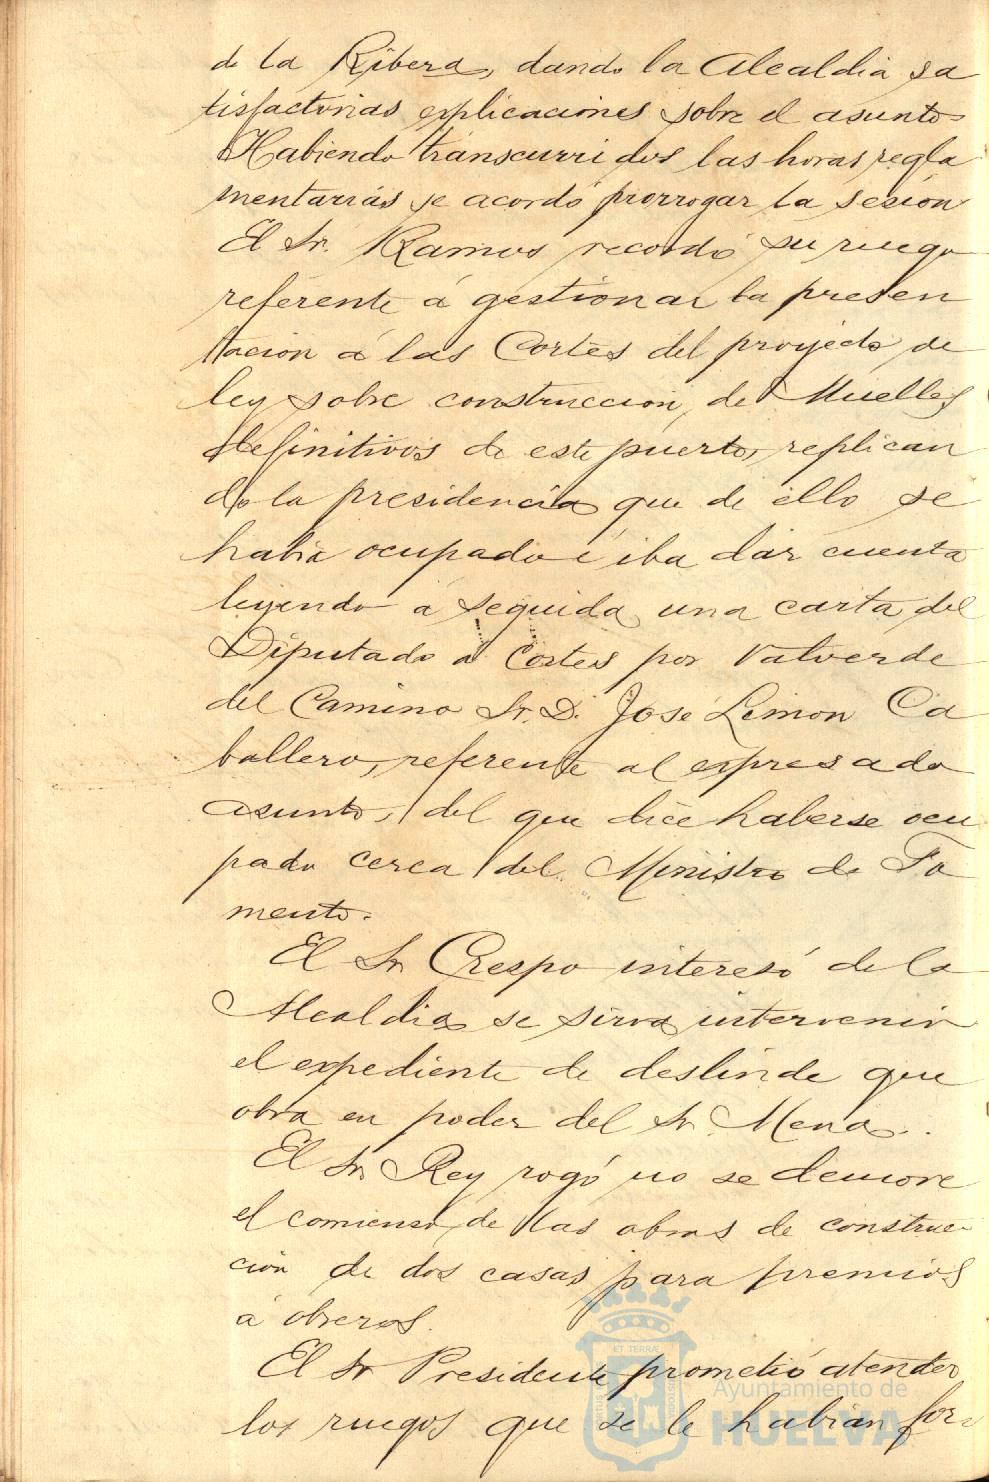 de la Ribera, dando la Alcaldia sa
tisfactorias explicaciones sobre el asunto
Habiendo transcurridos las horas regla
mentarias se acordó prorrogar la sesión
El Sr. Ramos recordó su ruego
referente á gestionar la presen
tación á las Cortes del proyecto de
ley sobre construccion de Muelles
definitivos de este puerto, replican
do la presidencia que de ello se
habia ocupado é iba dar cuenta
leyendo á seguida una carta del
Diputado á Cortes por Valverde
del Camino Sr. D. José Limon Ca
ballero, referente al expresado
asunto, del que dice haberse ocu
pado cerca del Ministro de Fo
mento.
El Sr Crespo interesó de la
Alcaldia se sirva intervenir
el expediente de deslinde que
obra en poder del Sr. Mena.
El Sr. Rey rogó no se demore
el comienso de las obras de construc
ción de dos casas para premios
á obreros.
El Sr Presidente prometió atender
los ruegos que se le habian for
ET TERRÆ
Ayuntamiento de
HUELVA